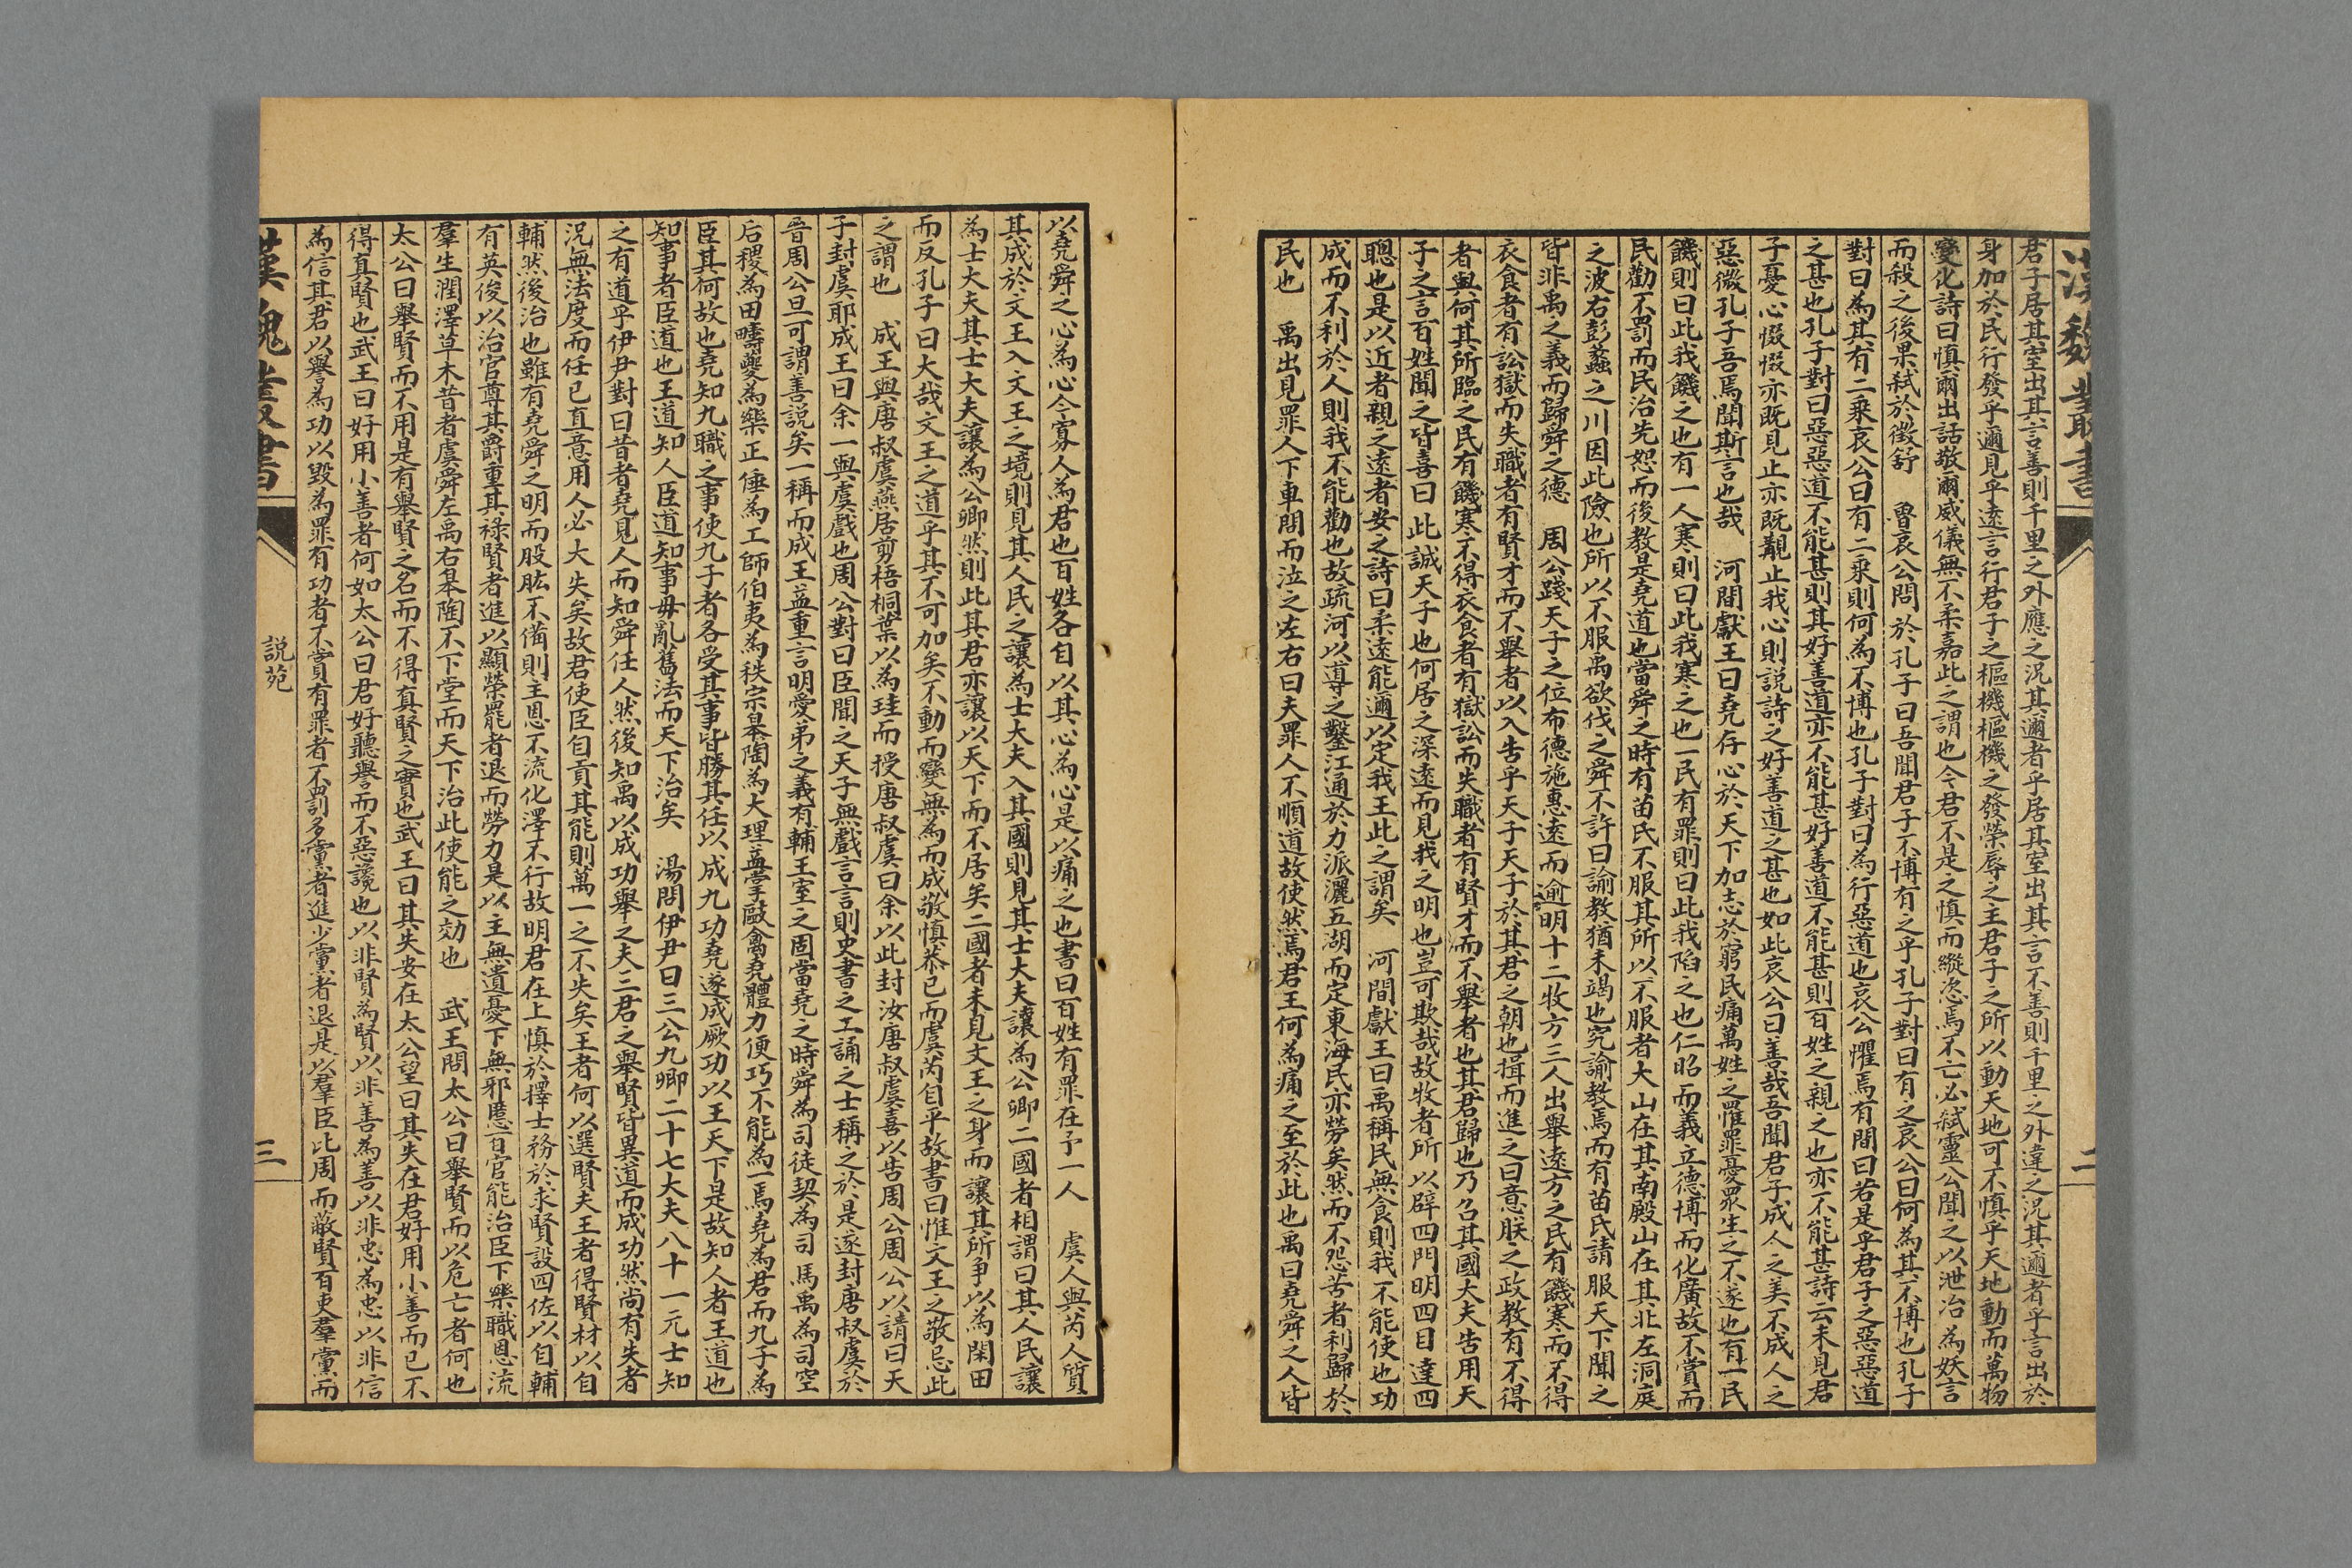 漢魏叢書
二
君子居其室出其言善則千里之外應之況其邇者乎居其室出其言不善則千里之外違之況其邇者乎言出於
身加於民行發乎邇見乎遠言行君子之樞機樞機之發榮辱之主君子之所以動天地可不慎乎天地動而萬物
變化詩曰慎爾出話敬爾威儀無不柔嘉此之謂也今君不是之慎而縱恣焉不亡必弒靈公聞之以泄冶為妖言
而殺之後果弒於徵舒　魯哀公問於孔子曰吾聞君子不博有之乎孔子對曰有之哀公曰何為其不博也孔子
對曰為其有二乘哀公曰有二乘則何為不博也孔子對曰為行惡道也哀公懼焉有間曰若是乎君子之惡惡道
之甚也孔子對曰惡惡道不能甚則其好善道亦不能甚好善道不能甚則百姓之親之也亦不能甚詩云未見君
子憂心惙惙亦既見止亦既覯止我心則説詩之好善道之甚也如此哀公曰善哉吾聞君子成人之美不成人之
惡微孔子吾焉聞斯言也哉　河間獻王曰堯存心於天下加志於窮民痛萬姓之罹罪憂眾生之不遂也有一民
饑則曰此我饑之也有一人寒則曰此我寒之也一民有罪則曰此我陷之也仁昭而義立德博而化廣故不賞而
民勸不罰而民治先恕而後教是堯道也當舜之時有苗氏不服其所以不服者大山在其南殿山在其北左洞庭
之波右彭蠡之川因此險也所以不服禹欲伐之舜不許曰諭教猶未竭也究諭教焉而有苗氏請服天下聞之
皆非禹之義而歸舜之德　周公踐天子之位布德施惠遠而逾明十二牧方三人出舉遠方之民有饑寒而不得
衣食者有訟獄而失職者有賢才而不舉者以入告乎天子天子於其君之朝也揖而進之曰意朕之政教有不得
者與何其所臨之民有饑寒不得衣食者有獄訟而失職者有賢才而不舉者也其君歸也乃召其國大夫告用天
子之言百姓聞之皆喜曰此誠天子也何居之深遠而見我之明也豈可欺哉故牧者所以辟四門明四目達四
聰也是以近者親之遠者安之詩曰柔遠能邇以定我王此之謂矣　河間獻王曰禹稱民無食則我不能使也功
成而不利於人則我不能勸也故疏河以導之鑿江通於九派灑五湖而定東海民亦勞矣然而不怨苦者利歸於
民也　禹出見罪人下車問而泣之左右曰夫罪人不順道故使然焉君王何為痛之至於此也禹曰堯舜之人皆
以堯舜之心為心今寡人為君也百姓各自以其心為心是以痛之也書曰百姓有罪在予一人　虞人與芮人質
其成於文王入文王之境則見其人民之讓為士大夫入其國則見其士大夫讓為公卿二國者相謂曰其人民讓
為士大夫其士大夫讓為公卿然則此其君亦讓以天下而不居矣二國者未見文王之身而讓其所爭以為閑田
而反孔子曰大哉文王之道乎其不可加矣不動而變無為而成敬慎恭己而虞芮自平故書曰惟文王之敬忌此
之謂也　成王與唐叔虞燕居剪梧桐葉以為珪而授唐叔虞曰余以此封汝唐叔虞喜以告周公周公以請曰天
子封虞耶成王曰余一與虞戲也周公對曰臣聞之天子無戲言言則史書之工誦之士稱之於是遂封唐叔虞於
晉周公旦可謂善説矣一稱而成王益重言明愛弟之義有輔王室之固當堯之時舜為司徒契為司馬禹為司空
后稷為田疇夔為樂正倕為工師伯夷為秩宗皋陶為大理益掌敺禽堯體力便巧不能為一焉堯為君而九子為
臣其何故也堯知九職之事使九子者各受其事皆勝其任以成九功堯遂成厥功以王天下是故知人者王道也
知事者臣道也王道知人臣道知事毋亂舊法而天下治矣　湯問伊尹曰三公九卿二十七大夫八十一元士知
之有道乎伊尹對曰昔者堯見人而知舜任人然後知禹以成功舉之夫三君之舉賢皆異道而成功然尚有失者
況無法度而任己直意用人必大失矣故君使臣自貢其能則萬一之不失矣王者何以選賢夫王者得賢材以自
輔然後治也雖有堯舜之明而股肱不備則主恩不流化澤不行故明君在上慎於擇士務於求賢設四佐以自輔
有英俊以治官尊其爵重其祿賢者進以顯榮罷者退而勞力是以主無遺憂下無邪慝百官能治臣下樂職恩流
羣生潤澤草木昔者虞舜左禹右皋陶不下堂而天下治此使能之効也　武王問太公曰舉賢而以危亡者何也
太公曰舉賢而不用是有舉賢之名而不得真賢之實也武王曰其失安在太公望曰其失在君好用小善而已不
得真賢也武王曰好用小善者何如太公曰君好聽譽而不惡讒也以非賢為賢以非善為善以非忠為忠以非信
為信其君以譽為功以毀為罪有功者不賞有罪者不罰多黨者進少黨者退是以羣臣比周而蔽賢百吏羣黨而
漢魏叢書
説苑
三